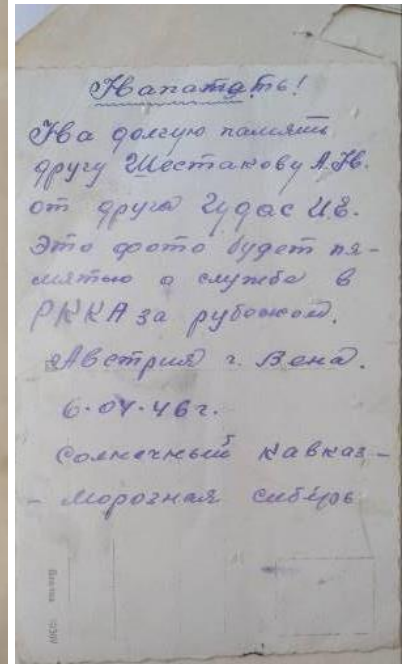 На память!
На долгую память
другу Шестакову А.Н.
от друга Гудас И.Е.
Это фото будет па-
мятью о службе в
РККА за рубежом.
Австрия г. Вена.
6.04.46г.
Солнечный кавказ -
- морозная сибирь